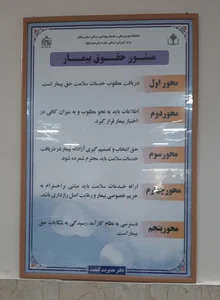 منشور حقوق بیمار
محور اول
دریافت مطلوب خدمات سلامت حق بیمار است.
محور دوم
اطلاعات باید به نحو مطلوب و به میزان کافی در
اختیار بیمار قرار گیرد.
محور سوم
حق انتخاب و تصمیم گیری آزادانه بیمار در دریافت
خدمات سلامت باید محترم شمرده شود.
محور چهارم
ارائه خدمات سلامت باید مبتنی بر احترام به
حریم خصوصی بیمار و رعایت اصل رازداری باشد.
محور پنجم
دسترسی به نظام کارآمد رسیدگی به شکایات حق
بیمار است.
دفتر مدیریت کیفیت